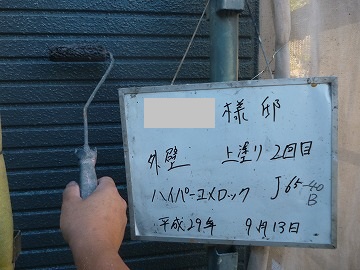 様邸
外壁 上塗り 2回目
ハイパーユメロック J65-40
B
平成29年 9月13日